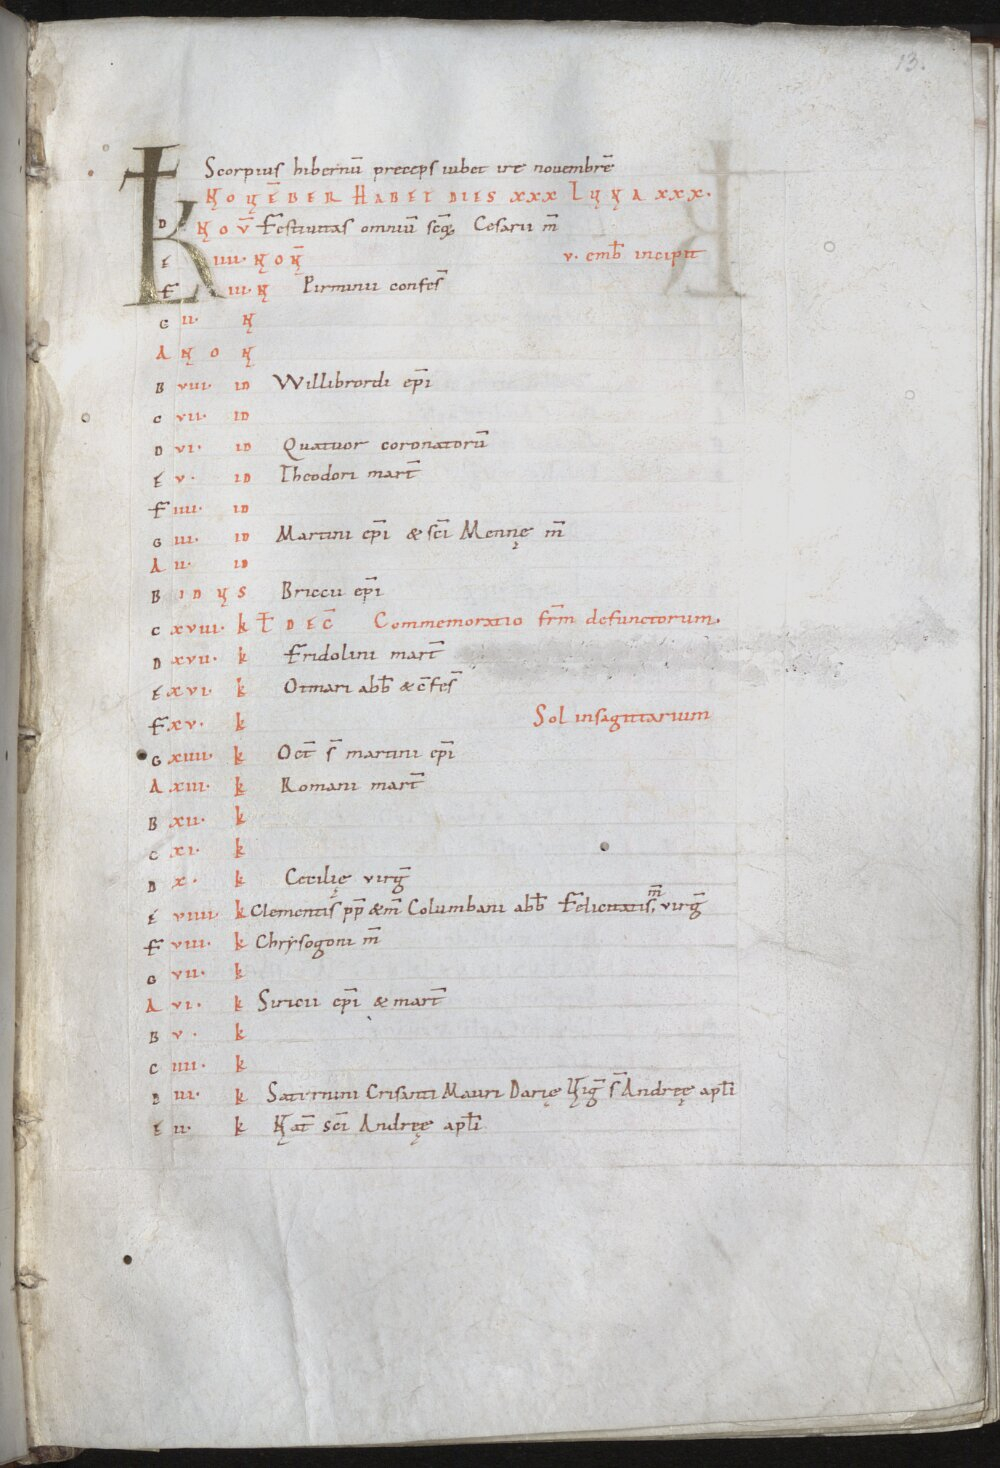 13.
KL Scorpius hibernū preceps iubet ire novembrē
NOVĒBER HABET DIES XXX LUNA XXX.
D NOV̄ Festivitas omniū scōꝝ Cesarii m̄
E IIII. NON̄ v. emb̄ incipit
F III. N Pirminii confes̄
G II. N
A NON
B VIII. ID Willibrordi ep̄i
C VII. ID
D VI. ID Quatuor coronatorū
E V. ID Theodori mart̄
F IIII. ID
G III. ID Martini ep̄i & sc̄i Mennę m̄
A II. ID
B IDUS Briccii ep̄i
C XVIII. KL̄ DEC̄ Commemoratio fr̄m defunctorum.
D XVII. K Fridolini mart̄
E XVI. K Otmari abb̄ & c̄fes̄
F XV. K Sol insagittarium
G XIIII. K Oct̄ s̄ martini ep̄i
A XIII. K Romani mart̄
B XII. K
C XI. K
D X. K Cecilię virḡ
E VIIII. K Clementis pp̄ & m̄ Columbani abb̄ Felicitatis, m̄ virḡ
F VIII. K Chrysogoni m̄
G VII. K
A VI. K Siricii ep̄i & mart̄
B V. K
C IIII. K
D III. K Saturnini Crisanti Mauri Darię Uiḡ s̄ Andreę apl̄i
E II. K Nat̄ sc̄i Andreę apl̄i